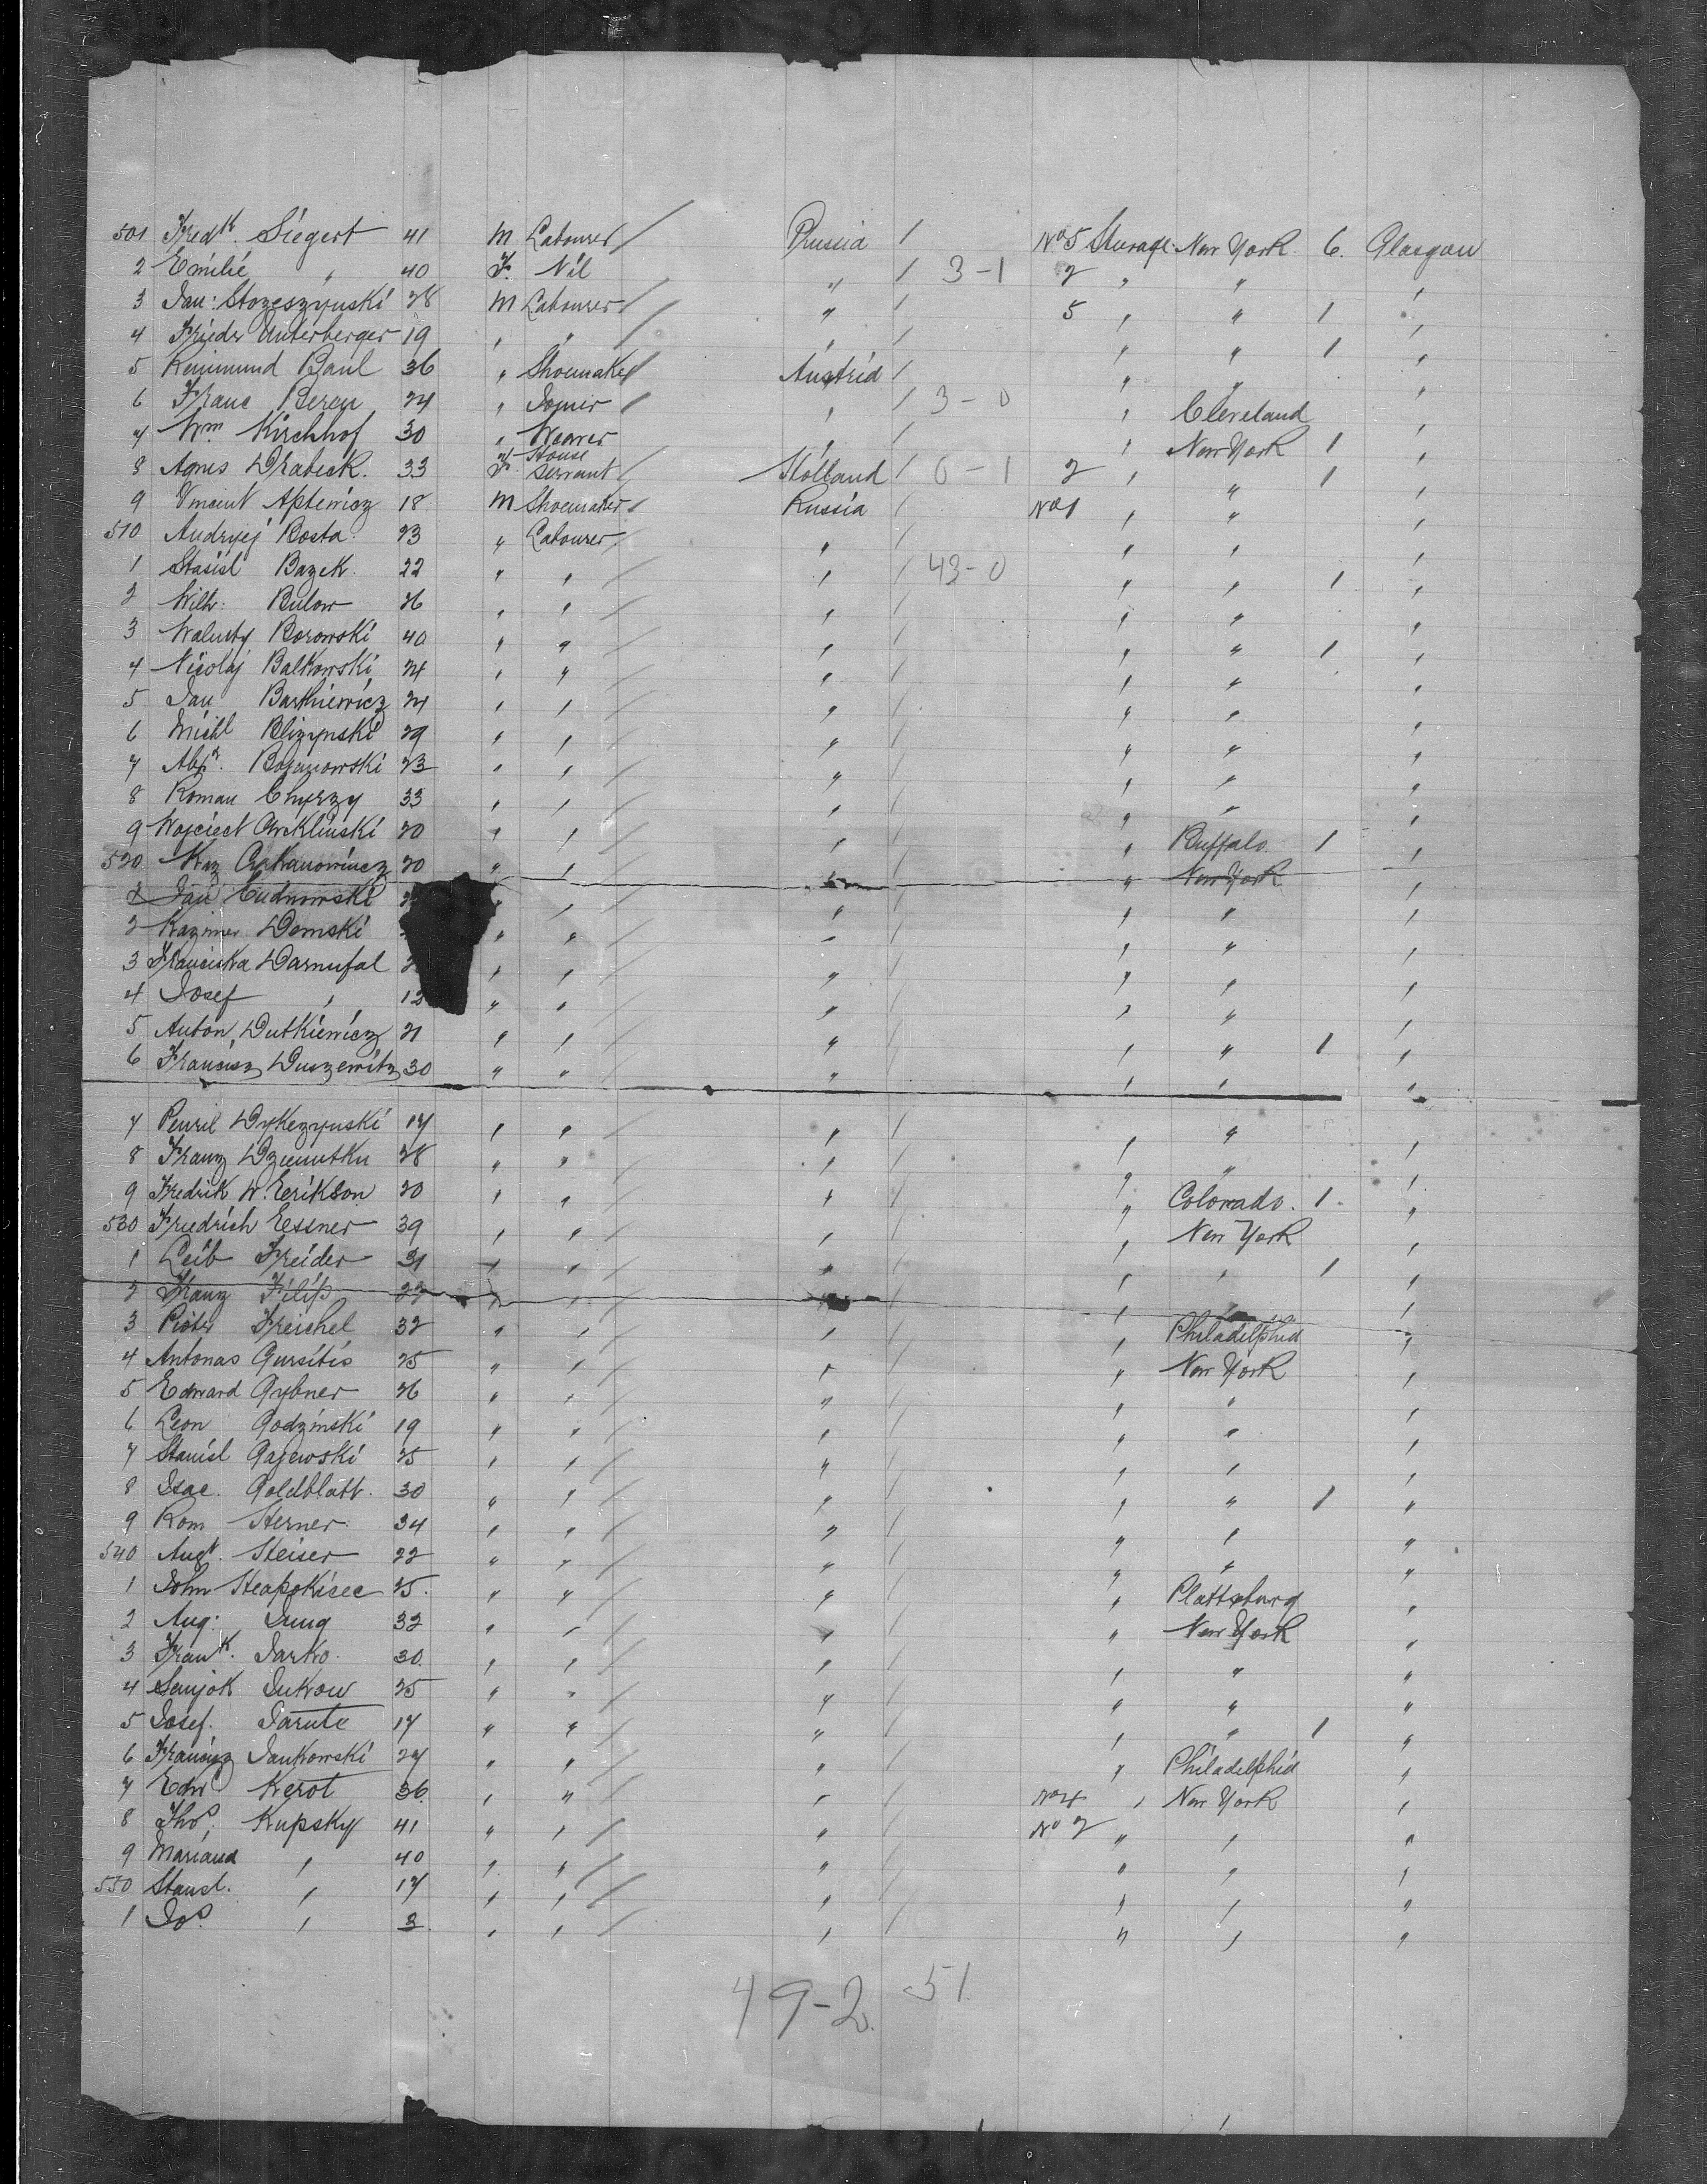 501 Fredk. Siegert 41 M Labourer / Prussia / No 5 Steerage New York 6. Glasgow
2 Emilie " 40 F. Nil " / 3-1 2 " " "
3 Jan: Stozeszynski 28 M Labourer / " / 5 " " 1 "
4 Frieder Unterberger 19 " " / " / " " 1 "
5 Reinmund Baul 36 " Shoemaker / Austria / " " "
6 Franc Beren 24 " Joiner / " / 3-0 " Cleveland "
7 Wm Kirchhof 30 " Weaver " / " New York 1 "
8 Agnes Drabeck. 33 F. House Servant / Holland / 0-1 2 " " 1 "
9 Vincent Aptewicz 18 M Shoemaker / Russia / No 1 " " "
510 Andryej Bosta 23 " Labourer / " / " " "
1 Stasisl Bazek. 22 " " / " / 43-0 " " 1 "
2 Wilh. Bulow 26 " " / " / " " "
3 Walenty Borowski 40 " " / " / " " 1 "
4 Nicolaj Balkowski 24 " " / " / " " "
5 Jan Barthiewicz 24 " " / " / " " "
6 Michl Blizynski 29 " " / " / " " "
7 Alexr. Bojanowski 23 " " / " / " " "
8 Roman Chyrzy 33 " " / " / " " "
9 Wojciect 20 " " / " / " Buffalo 1 "
520 Kaz 20 " " / " / " New York "
1 Jan Cudnowski " " / " / " " "
2 Kazimer Domski " " / " / " " "
3 Franciska Darnufal " " / " / " " "
4 Josef " 12 " " / " / " " "
5 Anton Dutkiewicz 21 " " / " / " " 1 "
6 Francisz Duszewitz 30 " " / " / " " "
7 Dykezynski 17 " " / " / " " "
8 Franz 28 " " / " / " " "
9 Fredrik W. Erikson 20 " " / " / " Colorado. 1. "
530 Friedrich Essner 39 " " / " / " New York "
1 Leib Freider 31 " " / " / " " 1 "
2 Franz Filip 22 " " / " / " " "
3 Piotr Freichel 32 " " / " / " Philadelphia "
4 Antonas Gursitis 25 " " / " / " New York "
5 Edward Gybner 26 " " / " / " " "
6 Leon Godzinski 19 " " / " / " " "
7 Stanisl Gajewski 25 " " / " / " " "
8 Isac. Goldblatt. 30 " " / " / " " 1 "
9 Rom Herner 34 " " / " / " " "
540 Augt. Heiser 22 " " / " / " " "
1 John Heapokisee 25. " " / " / " Plattsburg "
2 Aug. Jung 32 " " / " / " New York "
3 Frank. Jarko. 30. " " / " / " " "
4 Semjok Jukow 25 " " / " / " " "
5 Josef. Jarute 17 " " / " / " " 1 "
6 Francisz Jankowski 27 " " / " / " Philadelphia "
7 Edw Kerot 36. " " / " / No 4 " New York "
8 Thos. Kupsky 41 " " / " / No 2 " " "
9 Mariana " 40 " " / " / " " "
550 Stansl. " 17 " " / " / " " "
1 Jos. " 3 " " / " / " " "
49-2. 51.